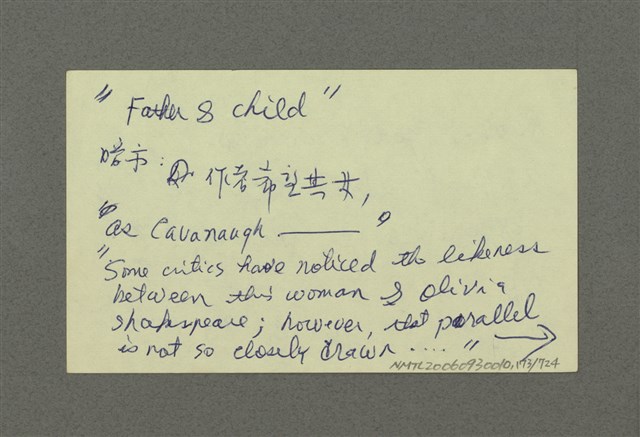 "Father & child"
暗示:
作者希望其女,
"as Cavanaugh ——— "
"Some critics have noticed the likeness
between this woman & Olivia
Shakspeare; however, that parallel
is not so closely drawn .... " →
NMTL20060930010,173/724